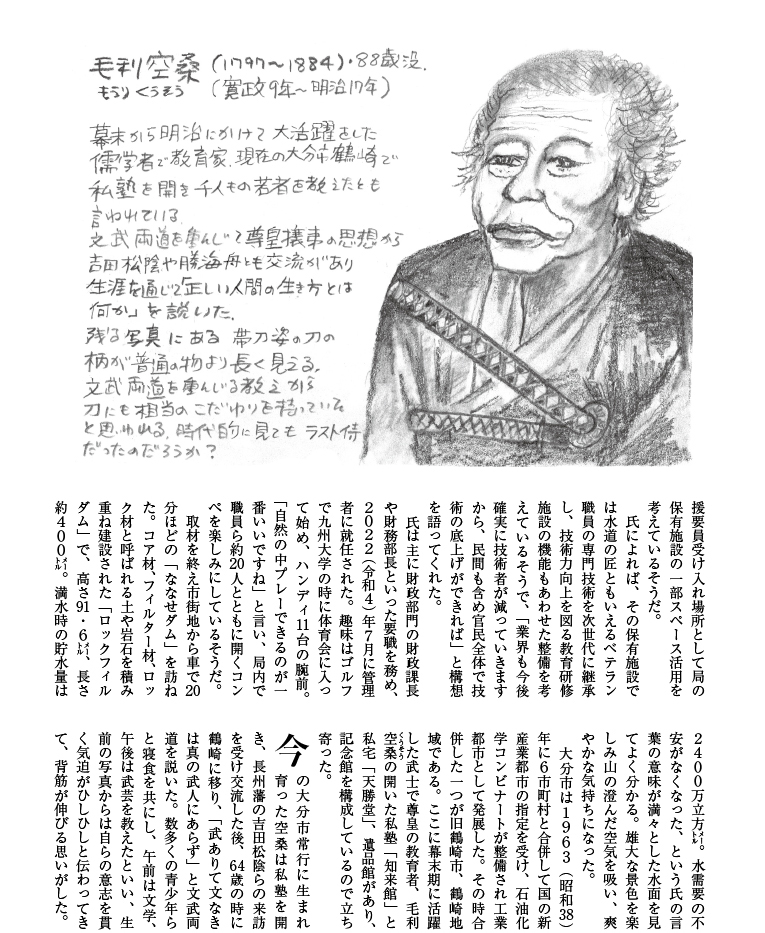 毛利空桑 (1797〜1884)・88歳没.
もうり くうそう (寛政9年〜明治17年)
幕末から明治にかけて大活躍をした
儒学者で教育家.現在の大分市鶴崎で
私塾を開き千人もの若者を教えたとも
言われている.
文武両道を重んじて尊皇攘夷の思想から
吉田松陰や勝海舟とも交流があり
生涯を通じて「正しい人間の生き方とは
何か」を説いた.
残る写真にある 帯刀姿の刀の
柄が普通の物より長く見える.
文武両道を重んじる教えから
刀にも相当のこだわりを持っていた
と思われる.時代的に見てもラスト侍
だったのだろうか?
援要員受け入れ場所として局の
保有施設の一部スペース活用を
考えているそうだ。
氏によれば、その保有施設で
は水道の匠ともいえるベテラン
職員の専門技術を次世代に継承
し、技術力向上を図る教育研修
施設の機能もあわせた整備を考
えているそうで、「業界も今後
確実に技術者が減っていきます
から、民間も含め官民全体で技
術の底上げができれば」と構想
を語ってくれた。
氏は主に財政部門の財政課長
や財務部長といった要職を務め、
2022(令和4)年7月に管理
者に就任された。趣味はゴルフ
で九州大学の時に体育会に入っ
て始め、ハンディ11台の腕前。
「自然の中プレーできるのが一
番いいですね」と言い、局内で
職員ら約20人とともに開くコン
ペを楽しみにしているそうだ。
取材を終え市街地から車で20
分ほどの「ななせダム」を訪ね
た。コア材、フィルター材、ロッ
ク材と呼ばれる土や岩石を積み
重ね建設された「ロックフィル
ダム」で、高さ91・6㍍、長さ
約400㍍。満水時の貯水量は
2400万立方㍍。水需要の不
安がなくなった、という氏の言
葉の意味が満々とした水面を見
てよく分かる。雄大な景色を楽
しみ山の澄んだ空気を吸い、爽
やかな気持ちになった。
大分市は1963(昭和38)
年に6市町村と合併して国の新
産業都市の指定を受け、石油化
学コンビナートが整備され工業
都市として発展した。その時合
併した一つが旧鶴崎市、鶴崎地
域である。ここに幕末期に活躍
した武士で尊皇の教育者、毛利
空桑(くうそう)の開いた私塾「知来館」と
私宅「天勝堂」、遺品館があり、
記念館を構成しているので立ち
寄った。
今の大分市常行に生まれ
育った空桑は私塾を開
き、長州藩の吉田松陰らの来訪
を受け交流した後、64歳の時に
鶴崎に移り、「武ありて文なき
は真の武人にあらず」と文武両
道を説いた。数多くの青少年ら
と寝食を共にし、午前は文学、
午後は武芸を教えたといい、生
前の写真からは自らの意志を貫
く気迫がひしひしと伝わってき
て、背筋が伸びる思いがした。